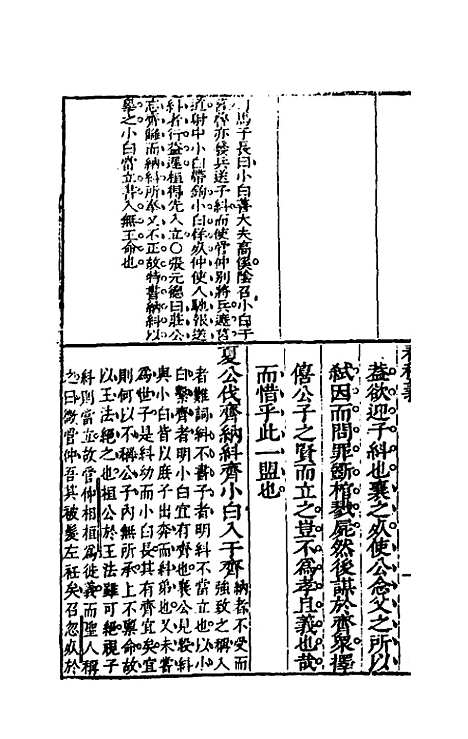 司馬子長曰小白善大夫高傒陰召小白于
莒魯亦發兵送子糾而使管仲別將兵遮莒
道射中小白帶鉤小白佯死仲使人馳報送
糾者行益遲桓得先入立○張元德曰莊公
忘齊讎而納糾所奉又不正故特書納糾以
之小白當立書入無王命也
葢欲迎子糾也襄之必使公念父之所以
弑因而問罪斷棺戮屍然後謀於齊衆擇
僖公子之賢而立之豈不爲孝且義也哉
而惜乎此一盟也
夏公伐齊納糾齊小白入于齊納者不受而強致之稱入
者難詞糾不書子者明糾不當立也以小
白繫齊者明小白宜有齊也襄公見殺糾
與小白皆以庶子出奔而糾弟也又未嘗
爲世子是糾幼而小白長其有齊宜矣宜
則何以不稱公子內無所承上不稟命故
以王法絕之也桓公於王法雖可絕視子
糾則當立故管仲相桓爲徙義而聖人稱
之曰微管仲吾其被髮左衽矣召忽死於